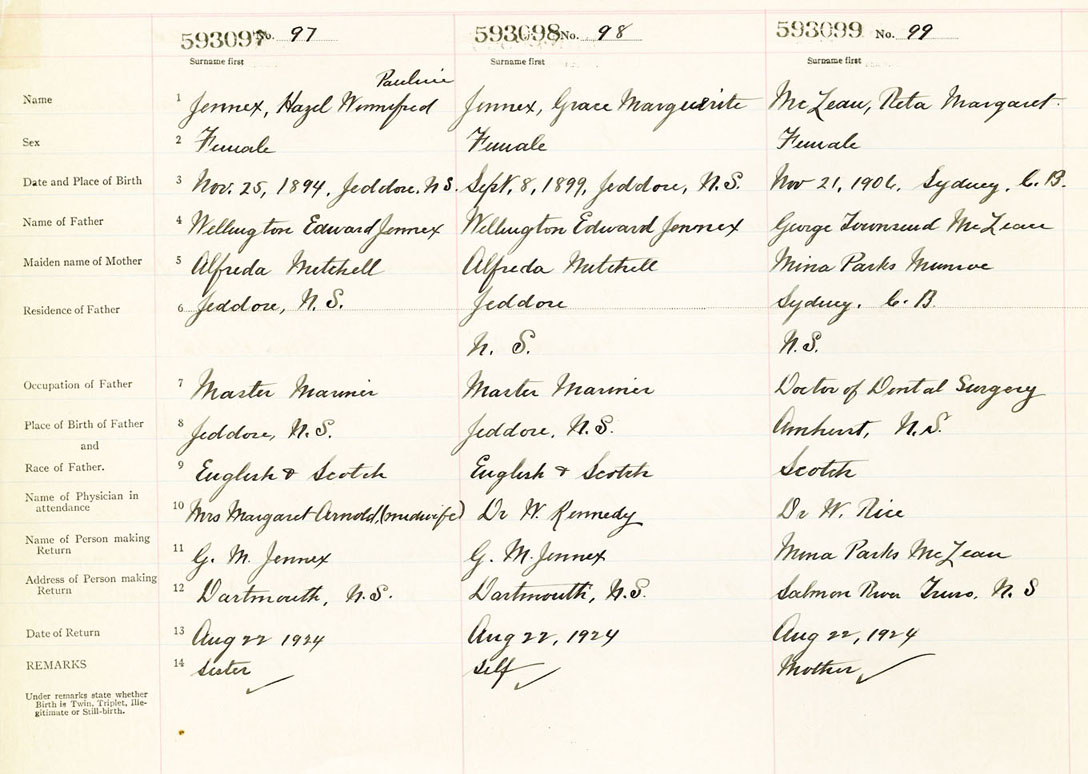 593097 No. 97 593098 No. 98 593099 No. 99
Surname first Surname first Surname first
Pauline
Name 1 Jennex, Hazel Winnifred Jennex, Grace Marguerite McLean, Reta Margaret.
Sex 2 Female Female Female
Date and Place of Birth 3 Nov. 25, 1894, Jeddore, N.S. Sept, 8, 1899, Jeddore, N.S. Nov 21, 1906, Sydney, C.B.
Name of Father 4 Wellington Edward Jennex Wellington Edward Jennex George Townsend McLean
Maiden name of Mother 5 Alfreda Mitchell Alfreda Mitchell Mina Parks Munroe
Residence of Father 6 Jeddore, N.S. Jeddore Sydney, C.B.
N.S. N.S.
Occupation of Father 7 Master Mariner Master Mariner Doctor of Dental Surgery
Place of Birth of Father 8 Jeddore, N.S. Jeddore, N.S. Amherst, N.S.
and
Race of Father. 9 English & Scotch English & Scotch Scotch
Name of Physician in attendance 10 Mrs Margaret Arnold, (midwife) Dr W. Kennedy Dr W. Rice
Name of Person making Return 11 G. M. Jennex G. M. Jennex Mina Parks McLean
Address of Person making Return 12 Dartmouth, N.S. Dartmouth, N.S. Salmon River Truro, N.S
Date of Return 13 Aug 22 1924 Aug 22, 1924 Aug 22, 1924
REMARKS 14 Sister Self Mother
Under remarks state whether
Birth is Twin, Triplet, Ille-
gitimate or Still-birth.